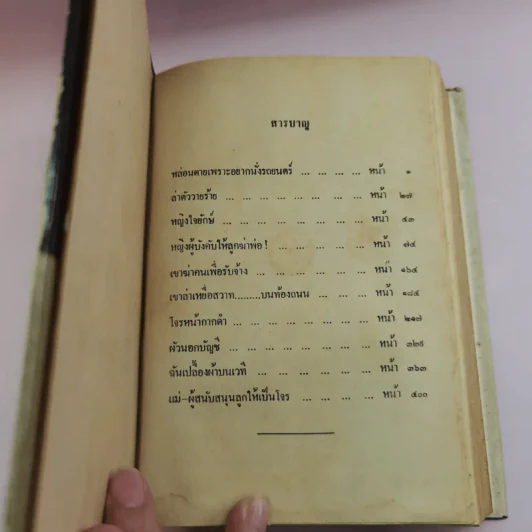 สารบาญ
หล่อนตายเพราะอยากนั่งรถยนตร์ ... ... ... ... หน้า ๑
ล่าตัววายร้าย ... ... ... ... ... ... ... ... หน้า ๒๗
หญิงใจยักษ์ ... ... ... ... ... ... ... ... หน้า ๔๓
หญิงผู้บังคับให้ลูกฆ่าพ่อ ! ... ... ... ... ... หน้า ๗๕
เขาฆ่าคนเพื่อรับจ้าง ... ... ... ... ... ... หน้า ๑๖๔
เขาล่าเหยื่อสวาท.........บนท้องถนน ... ... ... หน้า ๑๘๕
โจรหน้ากากดำ ... ... ... ... ... ... ... หน้า ๒๑๗
ผัวนอกบัญชี ... ... ... ... ... ... ... หน้า ๓๒๕
ฉันเปลื้องผ้าบนเวที ... ... ... ... ... ... หน้า ๓๖๓
แม่–ผู้สนับสนุนลูกให้เป็นโจร ... ... ... ... หน้า ๔๐๐